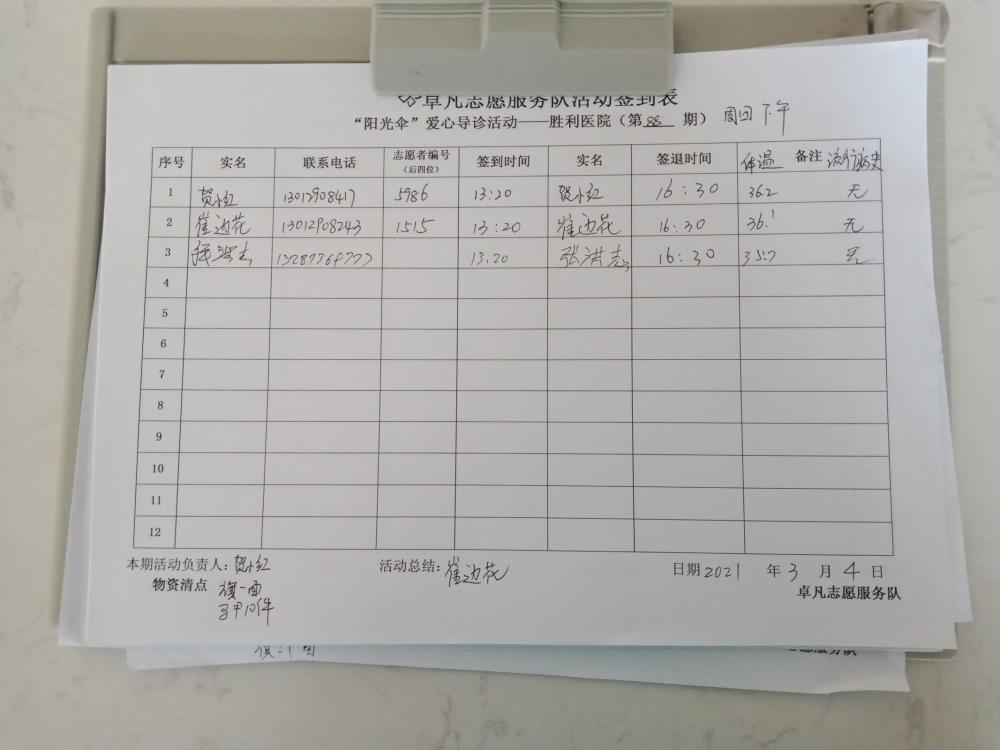 卓凡志愿服务队活动签到表
“阳光伞”爱心导诊活动——胜利医院（第88期） 周四下午
序号 实名 联系电话 志愿者编号（后四位） 签到时间 实名 签退时间 体温 备注 流行病史
1 贺小红 13012908417 5986 13:20 贺小红 16:30 36.2 无
2 崔边花 13012908243 1515 13:20 崔边花 16:30 36.1 无
3 张洪志 13:20 张洪志 16:30 35.7 无
4
5
6
7
8
9
10
11
12
本期活动负责人：贺小红 活动总结：崔边花 日期2021年3月4日
物资清点 旗一面 卓凡志愿服务队
马甲10件